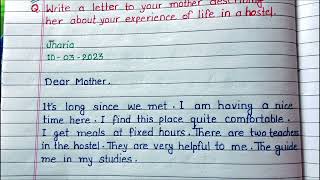 Q. Write a letter to your mother describing
her about your experience of life in a hostel.
Jharia
10-03-2023
Dear Mother,
It's long since we met. I am having a nice
time here. I find this place quite comfortable.
I get meals at fixed hours. There are two teachers
in the hostel. They are very helpful to me. The guide
me in my studies.